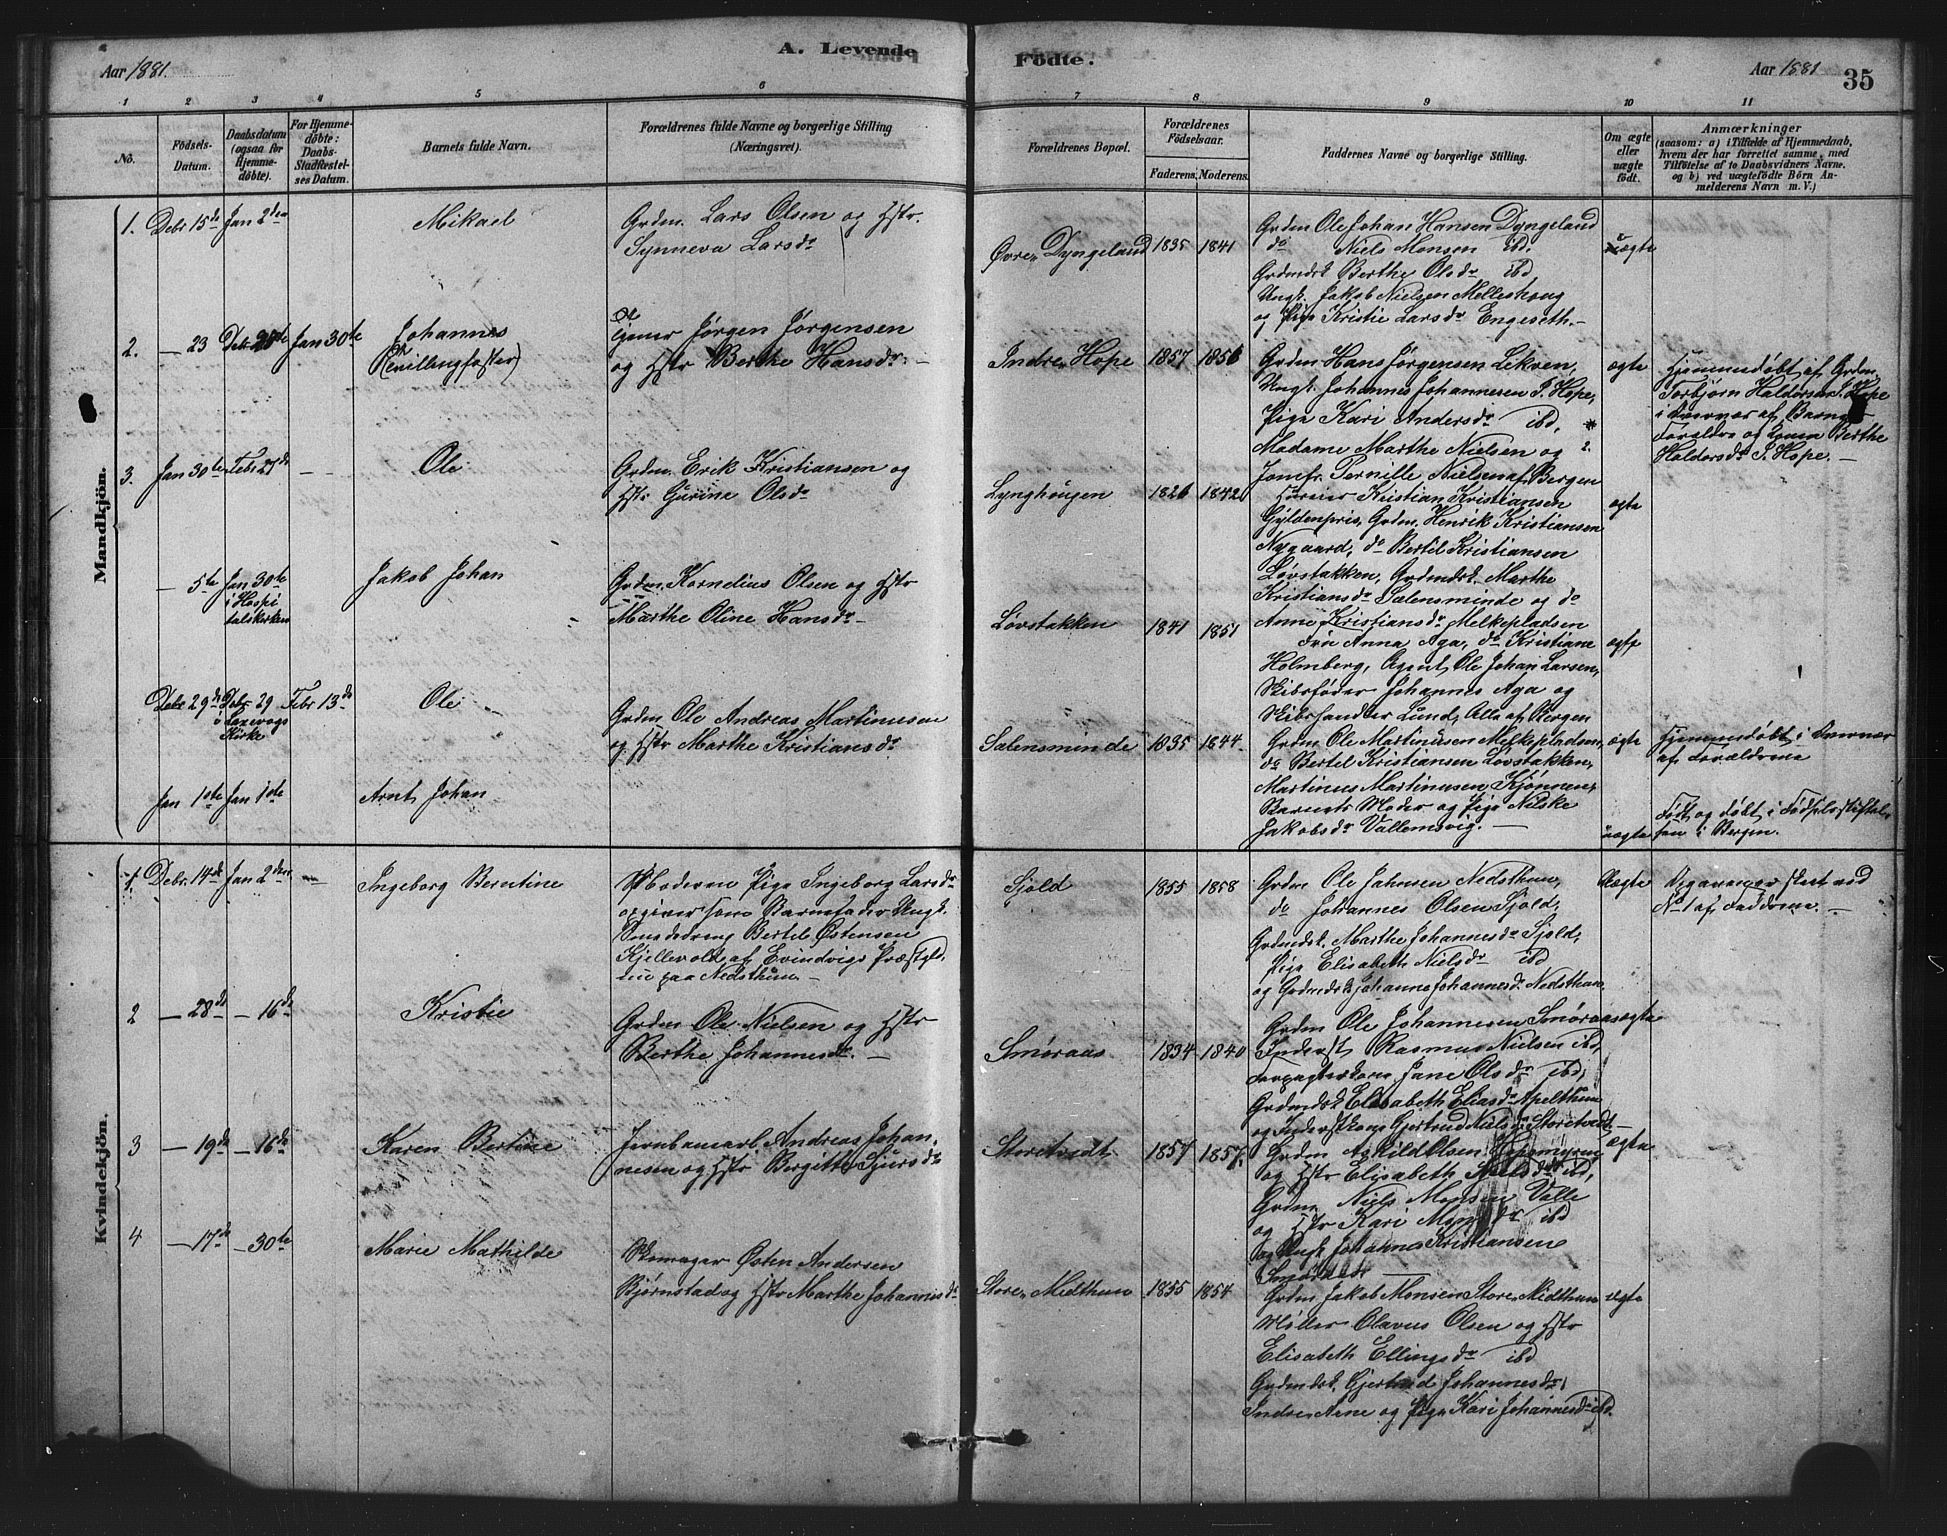 Aar 1881.
A. Levende
Födte.
Aar 1881
35
1
2
3
4
5
6
7
8
9
10
11
No.
Födsels-
Datum.
Daabsdatum
(ogsaa for
Hjemme-
döbte).
For Hjemme-
döbte:
Daabs-
Stadfæstel-
ses Datum.
Barnets fulde Navn.
Forældrenes fulde Navne og borgerlige Stilling
(Næringsvei).
Forældrenes Bopæl.
Forældrenes
Födselsaar.
Faderens.
Moderens.
Faddernes Navne og borgerlige Stilling.
Om ægte
eller
uægte
födt.
Anmærkninger
(saasom: a) i Tilfælde af Hjemmedaab,
hvem der har forrettet samme, med
Tilföielse af to Daabsvidners Navne.
og b) ved uægtefödte Börn An-
melderens Navn m. V.)
Mandkjön.
1. Debr 15de Jan 2den
Mikael
Grdm. Lars Olsen og Hstr.
Synneva Larsdr
Øvre Dyngeland 1835 1841
Grdm Ole Johan Hansen Dyngeland
do Niels Monsen ibd.
Grdmdsk Berthe Olsdr ibd
Ungk. Jakob Nielsen Melleshaug
og Pige Kristie Larsdr Engeseth.
ægte
2. — 23 Debr Jan 30te
Johannes
(Tvillingfoster)
Tjener Jørgen Jørgensen
og Hstr Berthe Hansdr. —
Indre Hope 1857 1856
Grdm Hans Jørgensen Lekven,
Ungk. Johannes Johannesen I. Hope,
Pige Kari Andersdr ibd.
Madame Marthe Nielsen og
Jomfr. Pernille Nielsen af Bergen
ægte
Hjemmedøbt af Grdm.
Torbjørn Haldorsen I. Hope
i Nærvær af Barnets
Forældre og Konen Berthe
Haldorsdr I. Hope. —
3. Jan 30te Febr 27de —
Ole
Grdm. Erik Kristiansen og
Hstr Gurine Olsdr
Lynghaugen 1826 1842
Kristian Kristiansen
Gyldenpris, Grdm. Henrik Kristiansen
Nygaard, do Bertel Kristiansen
Løvstakken, Grdmdsk. Marthe
Kristiansdr Sælensminde og do
Anne Kristiansdr Melkepladsen
ægte
— 5te Jan 30te
i Hospi
talskirken
Jakob Johan
Grdm. Kornelius Olsen og Hstr
Marthe Oline Hansdr. —
Løvstakken 1841 1851
Frøi Anna Aga, do Kristiane
Holmberg, Agent Ole Johan Larsen,
Skibsfører Johannes Aga og
Skibshandler Lund, Alle af Bergen
ægte
Debr 29de Debr 29 Febr 13de
i Laxevogs
Kirke
Ole
Grdm Ole Andreas Martinusen
og Hstr Marthe Kristiansdr
Sælensminde 1835 1844
Grdm. Ole Martinusen Melkepladsen,
do Bertel Kristiansen Løvstakken,
Martinus Martinusen Kjønnen,
Barnets Moder og Pige Nilske
Jakobsdr Vallemsvig. —
ægte
Hjemmedøbt i Nærvær
af Forældrene
Jan 1ste Jan 1ste
Arnt Johan
uægte
Født og døbt i Fødselsstiftel-
sen i Bergen.
Kvindekjön.
1. Debr. 14de Jan 2den —
Ingeborg Berntine
Moderen Pige Ingeborg Larsdr
opgiver som Barnefader Ungk.
Bertel Østensen
Kjellevold af Evindvigs Præstgld
paa Nedsthun. —
Sjold
1855 1858
Grdm Ole Jahnsen Nedsthun,
do Johannes Olsen Sjold,
Grdmdsk. Marthe Johannesdr Sjold,
Pige Elisabeth Nielsdr ibd
og Grdmdsk Johanne Johannesdr Nedsthun.
Uægte
Angivningen skeet ved
No 1 af Fadderne. —
2 — 28de — 16de
Kristie
Grdm Ole Nielsen og Hstr
Berthe Johannesdr. —
Smøraas 1834 1840
Grdm Ole Johannesen Smøraas
Inderst Rasmus Nielsen ibd,
Forpagterkone Jane Olsdr ibd,
Grdmdsk Elisabeth Eliasdr Apelthun
og Inderstkone Gjertrud Nielsdr Storetvedt. —
ægte
3 — 19de — 16de
Karen Bertine
Jernbanearb. Andreas Johan-
nesen og Hstr Bergitte Sjursdr
Storetvedt 1857 1857
Grdm Askild Olsen
og Hstr Elisabeth Nielsdr ibd,
Grdm Niels Monsen Valle
og Hstr Kari ibd
og Ungk Johannes Kristiansen
ægte
4 — 17de — 30te
Marie Mathilde
Skomager Østen Andersen
Bjørnstad og Hstr Marthe Johannesdr
Store Midthun 1855 1854
Grdm Jakob Monsen Store Midthun
Møller Olavus Olsen og Hstr
Elisabeth Ellingsdr ibd
Grdmdsk. Gjertrud Johannesdr
Indre Arne og Pige Kari Johannesdr ibd.
ægte